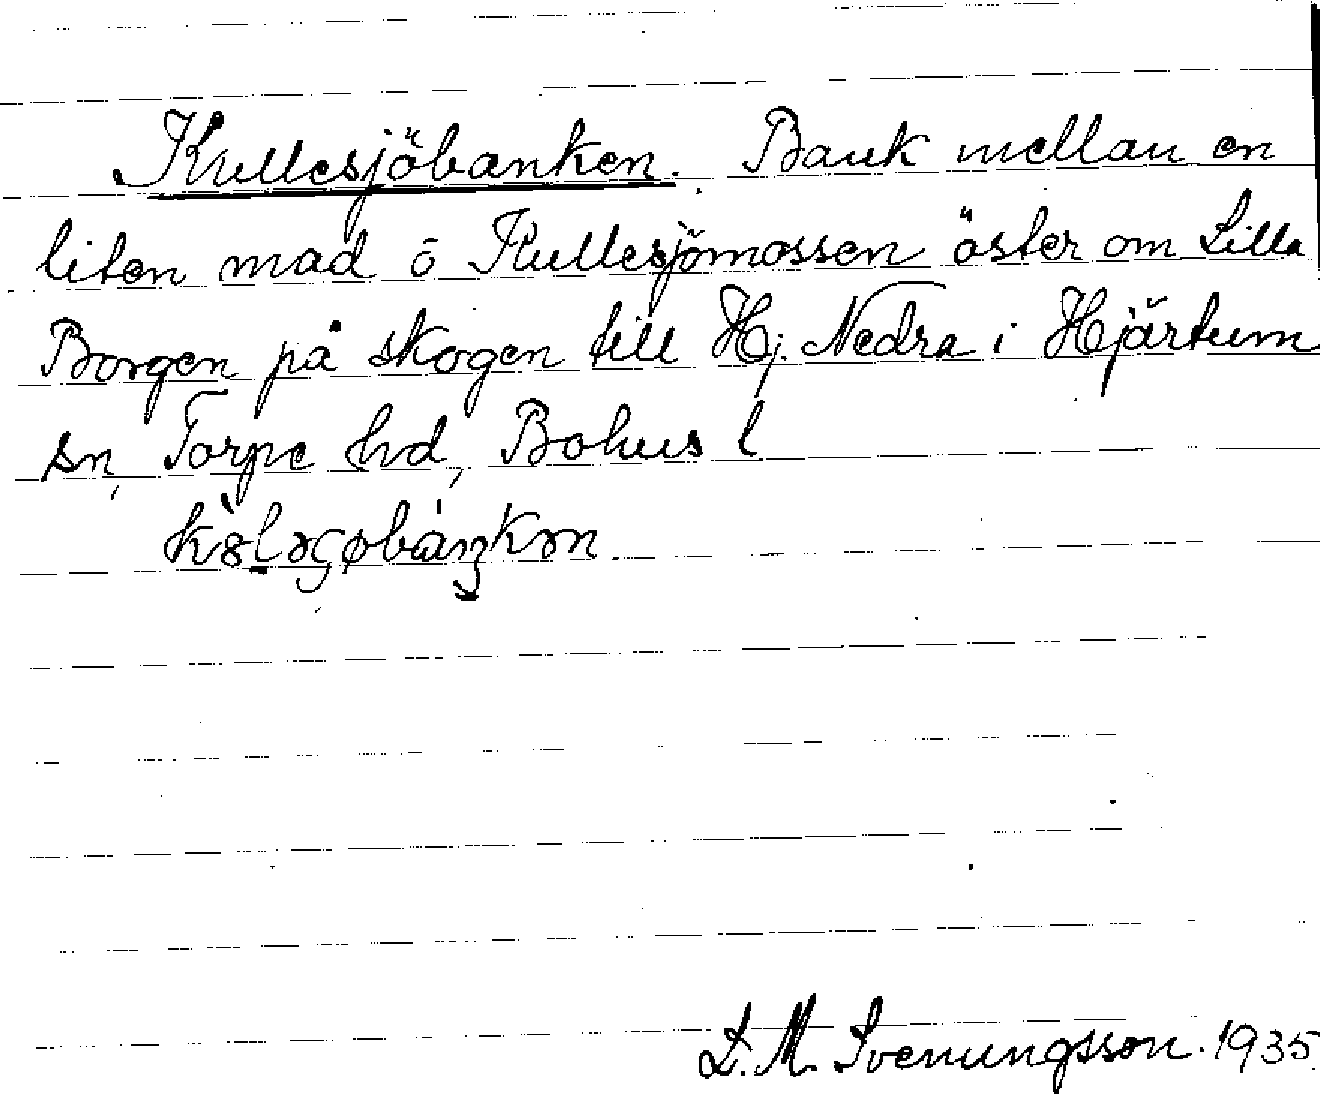 Kullesjöbanken. Bank mellan en
liten mad o Kullesjömossen öster om Lilla
Borgen på skogen till Hj. Nedra i Hjärtum
sn, Torpe hd, Bohus l
L. M. Svenungsson. 1935.